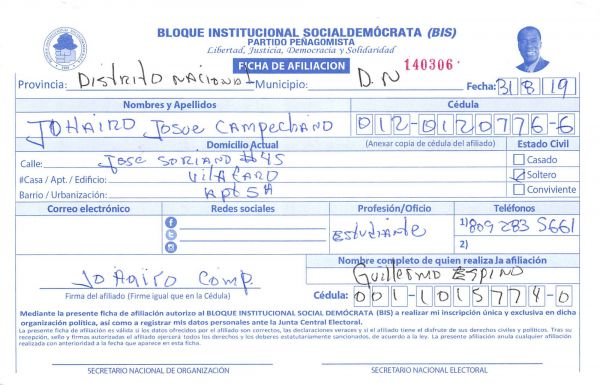 BLOQUE INSTITUCIONAL SOCIALDEMÓCRATA (BIS)
PARTIDO PEÑAGOMISTA
Libertad, Justicia, Democracia y Solidaridad
FICHA DE AFILIACION 140306
Provincia: Distrito Nacional Municipio: D.N Fecha: 31/8/19
Nombres y Apellidos Cédula
JOHAIRO Josue CAMPECHANO 012-0120776-6
Domicilio Actual (Anexar copia de cédula del afiliado) Estado Civil
Calle: Jose SORIANO #45 Casado
#Casa / Apt. / Edificio: Soltero
Barrio / Urbanización: Apt 5A Conviviente
Correo electrónico Redes sociales Profesión/Oficio Teléfonos
Estudiante 1) 809 283 5661
2)
Nombre completo de quien realiza la afiliación
Guillermo Espino
Firma del afiliado (Firme igual que en la Cédula) Cédula: 001-1015774-0
Mediante la presente ficha de afiliación autorizo al BLOQUE INSTITUCIONAL SOCIAL DEMÓCRATA (BIS) a realizar mi inscripción única y exclusiva en dicha
organización política, así como a registrar mis datos personales ante la Junta Central Electoral.
La presente ficha de afiliación da validez a los datos ofrecidos por el afiliado son correctos, las declaraciones veraces y si el afiliado tiene el disfrute de sus derechos civiles y políticos. Tras su
recepción, sello y firmas autorizadas el afiliado ejercerá todos los derechos y los deberes estatutariamente sancionados, de acuerdo a la ley. La presente afiliación anula cualquier afiliación
realizada con anterioridad a la fecha que aparece en esta ficha.
SECRETARIO NACIONAL DE ORGANIZACIÓN SECRETARIO NACIONAL ELECTORAL